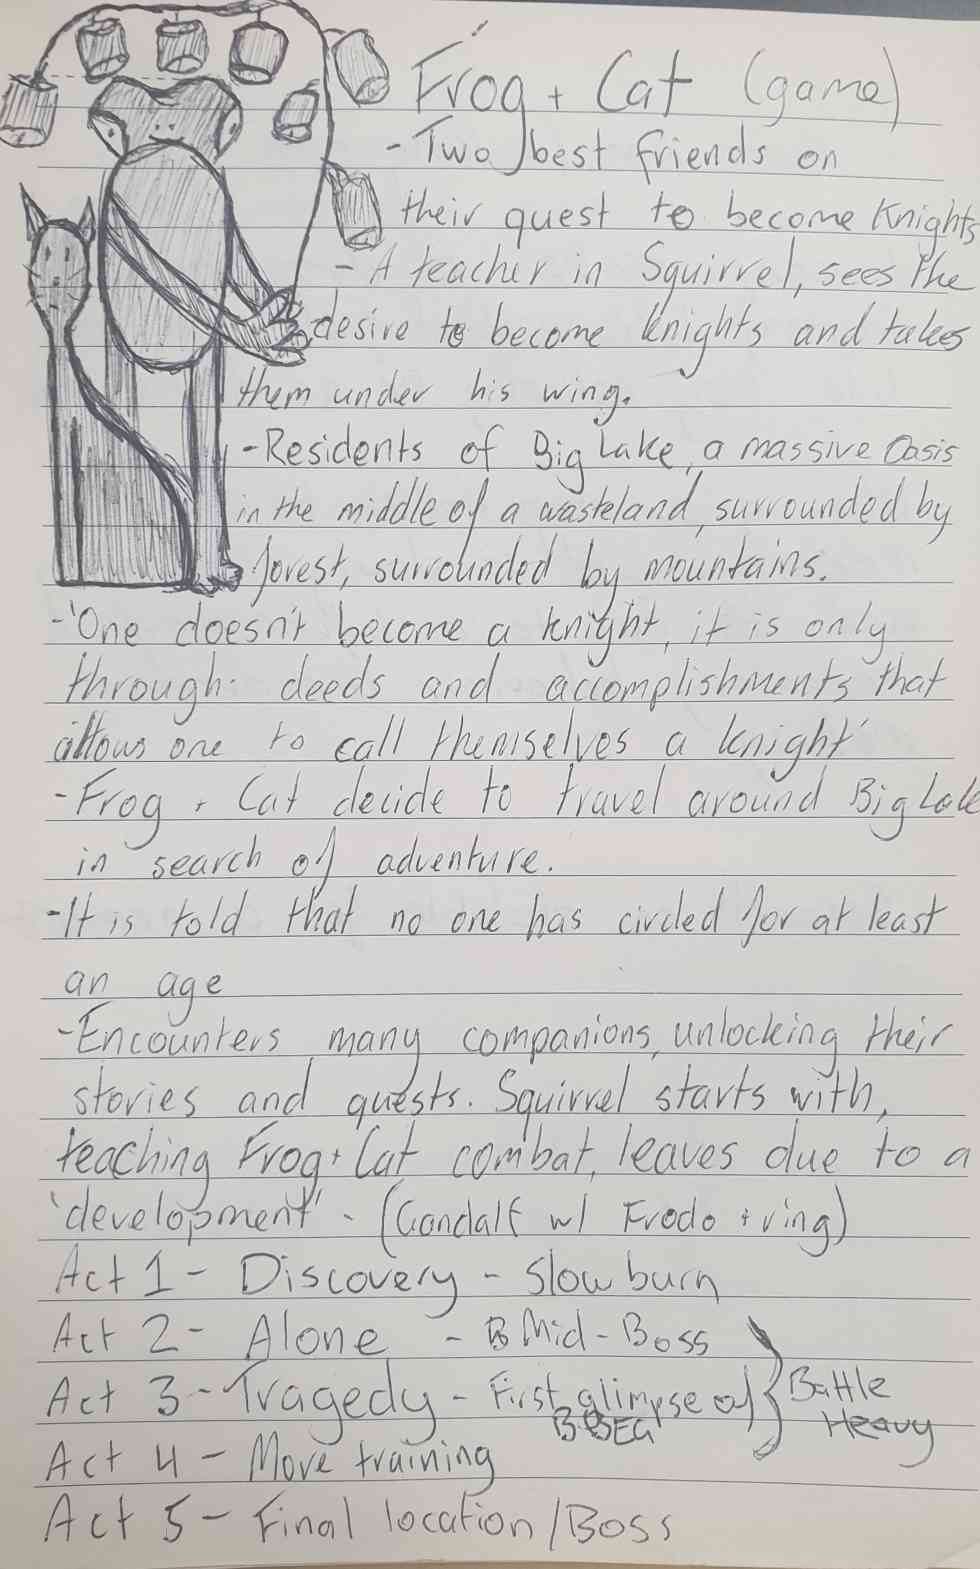 Frog + Cat (game)
- Two best friends on
their quest to become Knights
- A teacher in Squirrel, sees the
desire to become knights and takes
them under his wing.
- Residents of Big Lake, a massive Oasis
in the middle of a wasteland, surrounded by
forest, surrounded by mountains.
- 'One doesn't become a knight, it is only
through deeds and accomplishments that
allows one to call themselves a knight'
- Frog + Cat decide to travel around Big Lake
in search of adventure.
- It is told that no one has circled for at least
an age
- Encounters many companions, unlocking their
stories and quests. Squirrel starts with,
teaching Frog + Cat combat, leaves due to a
'development' - (Gandalf w/ Frodo + ring)
Act 1 - Discovery - Slow burn
Act 2 - Alone - Mid-Boss
Act 3 - Tragedy - First glimpse of
BBEG
Battle
Heavy
Act 4 - Move training
Act 5 - Final location/Boss